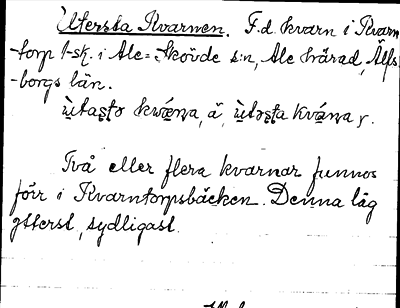 Utersta Kvarnen. F.d. kvarn i Kvarn
-torp 1-sk. i Ale-Skövde s:n, Ale härad, Älfs
-borgs län.
Två eller flera kvarnar funnos
förr i Kvarntorpsbäcken. Denna låg
ytterst, sydligast.